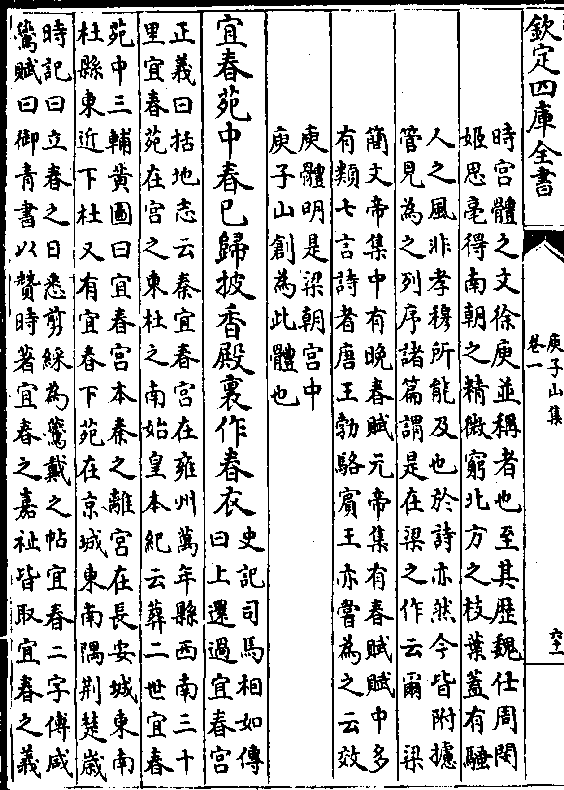 欽定四庫全書
庾子山集
卷一
六十一
時宫體之文徐庾並稱者也至其歴魏仕周閔
姬思亳得南朝之精微窮北方之枝葉蓋有騷
人之風非孝穆所能及也於詩亦然今皆附攄
管見為之列序諸篇謂是在梁之作云爾梁
簡文帝集中有晚春賦元帝集有春賦賦中多
有類七言詩者唐王勃駱賓王亦嘗為之云效
庾體明是梁朝宫中
庾子山創為此體也
宜春苑中春已歸披香殿裏作春衣
史記司馬相如傳
曰上還過宜春宫
正義曰括地志云秦宜春宫在雍州萬年縣西南三十
里宜春苑在宫之東杜之南始皇本紀云葬二世宜春
苑中三輔黄圖曰宜春宫本秦之離宫在長安城東南
杜縣東近下杜又有宜春下苑在京城東南隅荆楚歳
時記曰立春之日悉剪綵為鷰戴之帖宜春二字傅咸
鷰賦曰御青書以贊時著宜春之嘉祉皆取宜春之義